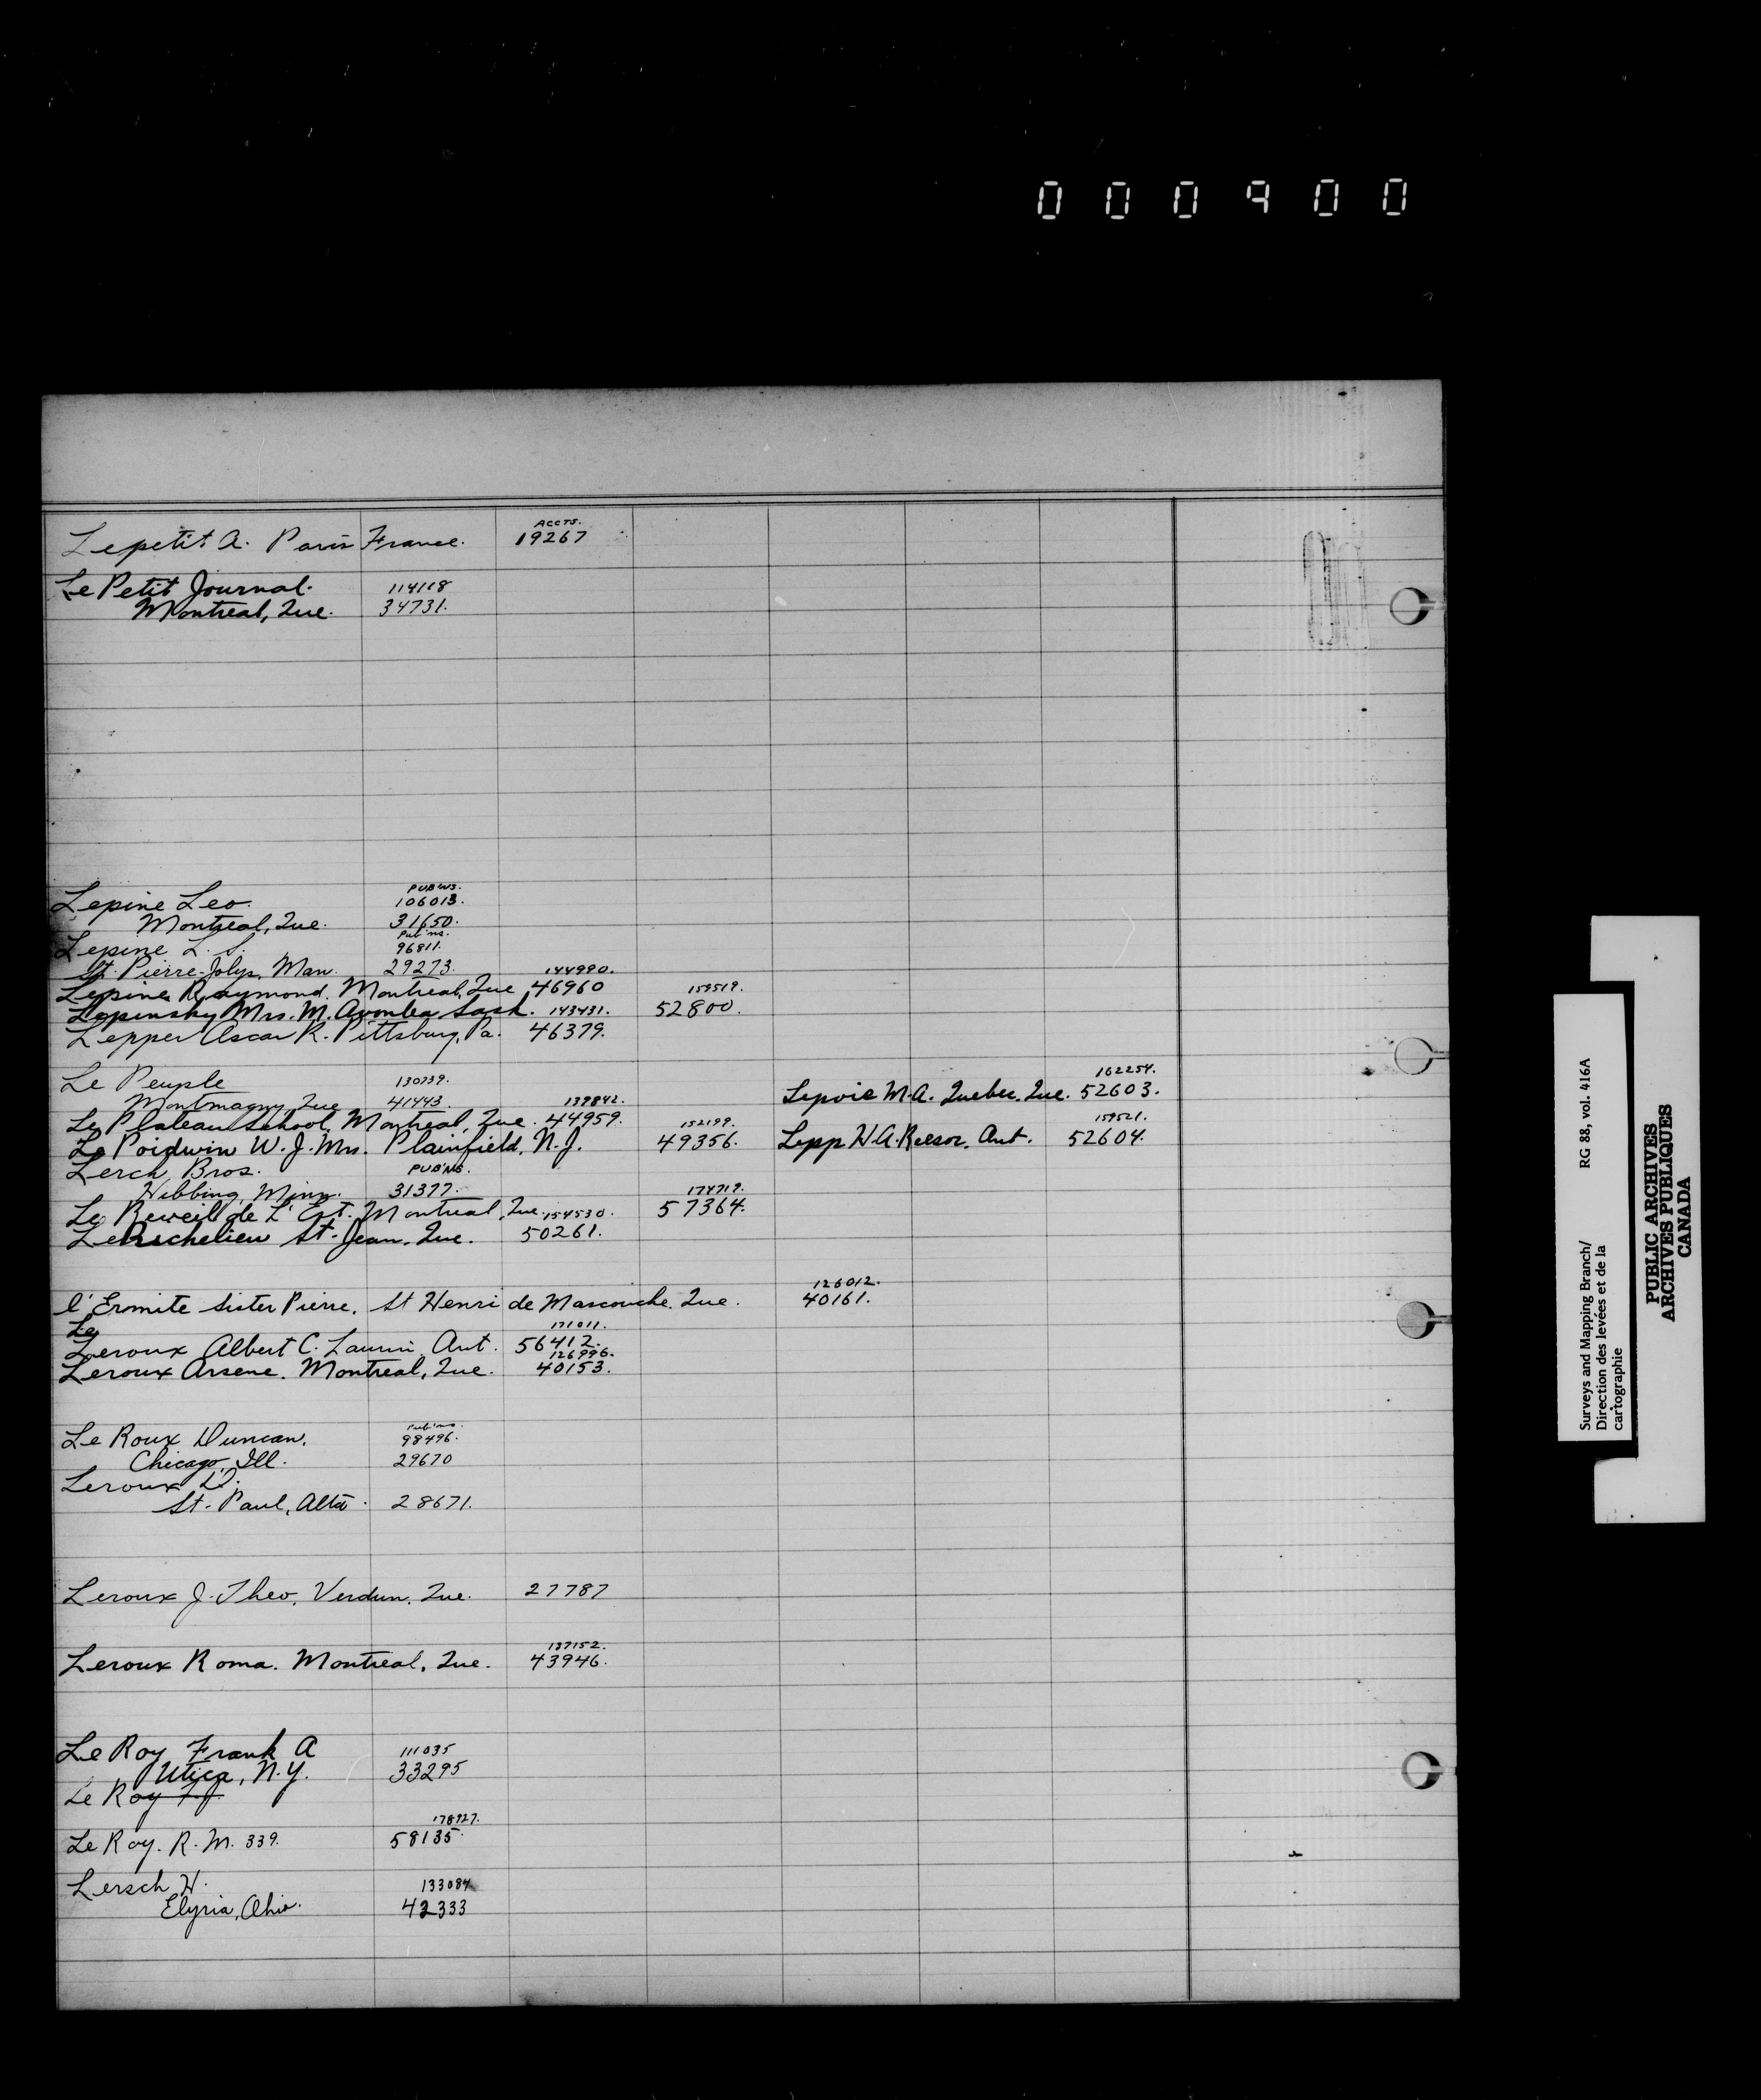 000900
ACCTS.
Lepetit A. Paris France. 19267
Le Petit Journal. 114118
Montreal, Que. 34731.
PUB'NS.
Lepine Leo. 106013.
Montreal, Que. 31650.
Pub'ns.
Lepine L. 96811.
St. Pierre-Jolys, Man. 29273. 144990.
Lepine Raymond. Montreal, Que 46960 159519.
Lepinsky Mrs. M. Avonlea Sask. 143431. 52800.
Lepper Oscar R. Pittsburg, Pa. 46379.
Le Peuple 130739. 162254.
Montmagny, Que 41443. 139842. Lepoie M.A. Quebec, Que. 52603.
Le Plateau School, Montreal, Que. 44959. 152199. 159521.
Le Poidwin W. J. Mrs. Plainfield, N.J. 49356. Lepp H.A. Reesor, Ont. 52604.
Lerch Bros. PUB'NS.
Hibbing, Minn. 31377. 174719.
Le Reveil de L'Est. Montreal, Que. 154530. 57364.
Le Richelieu St. Jean, Que. 50261.
126012.
l'Ermite Sister Pierre, St Henri de Mascouche. Que. 40161.
Le 171011.
Leroux Albert C. Laurin, Ont. 56412.
126996.
Leroux Arsene. Montreal, Que. 40153.
Pub'ns.
Le Roux Duncan. 98496.
Chicago, Ill. 29670
Leroux D.
St. Paul, Alta. 28671.
Leroux J. Theo, Verdun, Que. 27787
137152.
Leroux Roma. Montreal, Que. 43946.
Le Roy Frank A 111035
Utica, N.Y. 33295
Le Roy F J
178927.
Le Roy. R. M. 339. 58135.
Lersch H. 133084
Elyria, Ohio. 42333
Surveys and Mapping Branch/ RG 88, vol. 416A
Direction des levées et de la
cartographie
PUBLIC ARCHIVES
ARCHIVES PUBLIQUES
CANADA